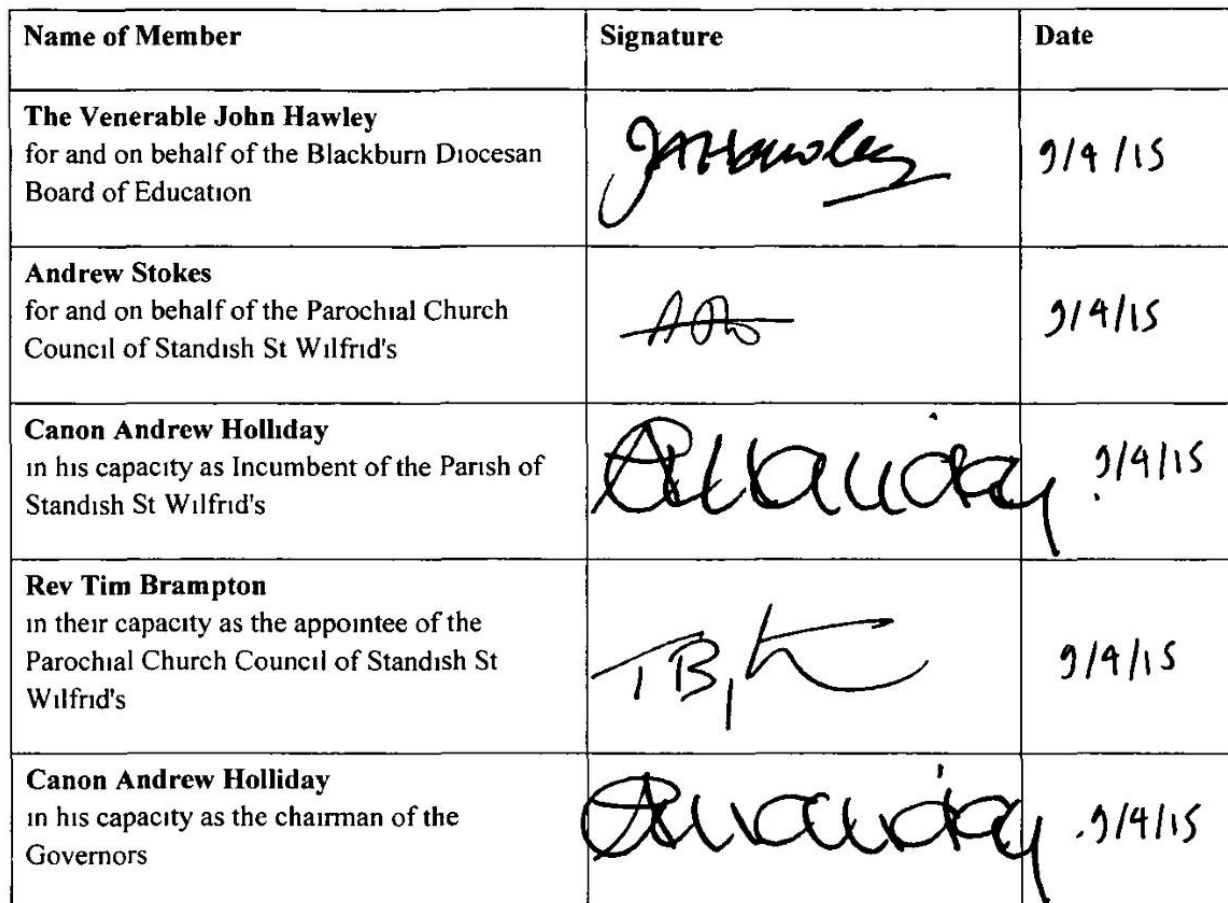 Name of Member Signature Date
The Venerable John Hawley
for and on behalf of the Blackburn Diocesan
Board of Education
JAHawley 9/4/15
Andrew Stokes
for and on behalf of the Parochial Church
Council of Standish St Wilfrid's
9/4/15
Canon Andrew Holliday
in his capacity as Incumbent of the Parish of
Standish St Wilfrid's
9/4/15
Rev Tim Brampton
in their capacity as the appointee of the
Parochial Church Council of Standish St
Wilfrid's
9/4/15
Canon Andrew Holliday
in his capacity as the chairman of the
Governors
9/4/15